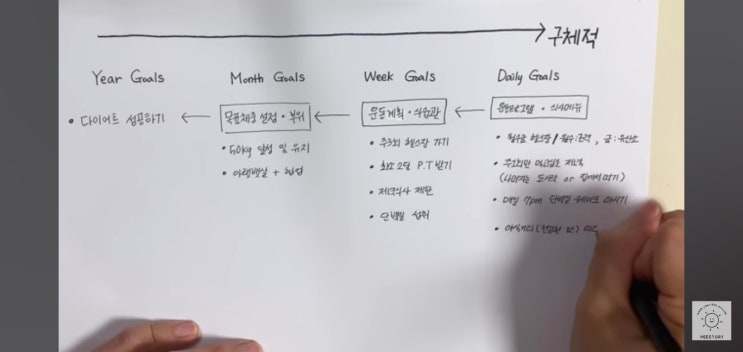 구체적
Year Goals
Month Goals
Week Goals
Daily Goals
• 다이어트 성공하기
목표체중 설정 · 부위
운동계획 · 식습관
운동프로그램 · 식사메뉴
• 50kg 달성 및 유지
• 아랫뱃살 + 힙업
• 주3회 헬스장 가기
• 최소 2달 P.T 받기
• 저녁식사 제한
• 단백질 섭취
• 월수금 헬스장 / 월수:근력, 금:유산소
• 주1회만 저녁
(나머지는 도시락 or 집에서 먹기)
• 매일 7pm 단백질 쉐이크 마시기
MEESTORY